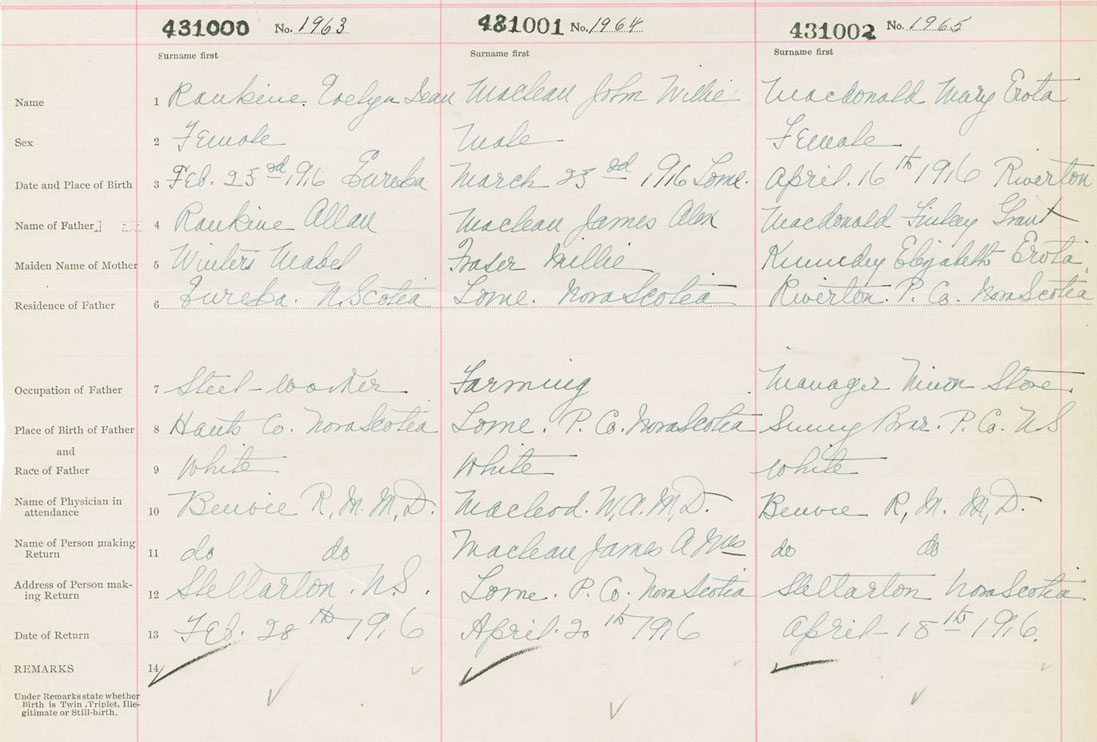 431000 No. 1963 431001 No. 1964 431002 No. 1965
Surname first Surname first Surname first
Name 1 Rankine. Evelyn Jean Maclean John Willie Macdonald Mary Erota
Sex 2 Female Male Female
Date and Place of Birth 3 Feb. 23rd 1916 Eureka March 23rd 1916 Lorne. April. 16th 1916 Riverton
Name of Father 4 Rankine Allan Maclean James Alex Macdonald Finley Grant
Maiden Name of Mother 5 Winters Mabel Fraser Millie Kennedy Elizabeth Erota
Residence of Father 6 Eureka. N.Scotia Lorne. Nova Scotia Riverton. P. Co. Nova Scotia
Occupation of Father 7 Steel-worker Farming Manager Store.
Place of Birth of Father 8 Hants Co. Nova Scotia Lorne. P. Co. Nova Scotia Sunny Brae. P. Co. N S
and
Race of Father 9 White White White
Name of Physician in
attendance 10 Benvie R, M. M, D. Macleod. W, A. M, D. Benvie R, M. M, D.
Name of Person making
Return 11 do do Maclean James A Mrs do do
Address of Person mak-
ing Return 12 Stellarton. N S. Lorne. P. Co. Nova Scotia Stellarton Nova Scotia
Date of Return 13 Feb. 28th 1916 April. 20th 1916 April-18th 1916.
REMARKS 14
Under Remarks state whether
Birth is Twin, Triplet, Ille-
gitimate or Still-birth.